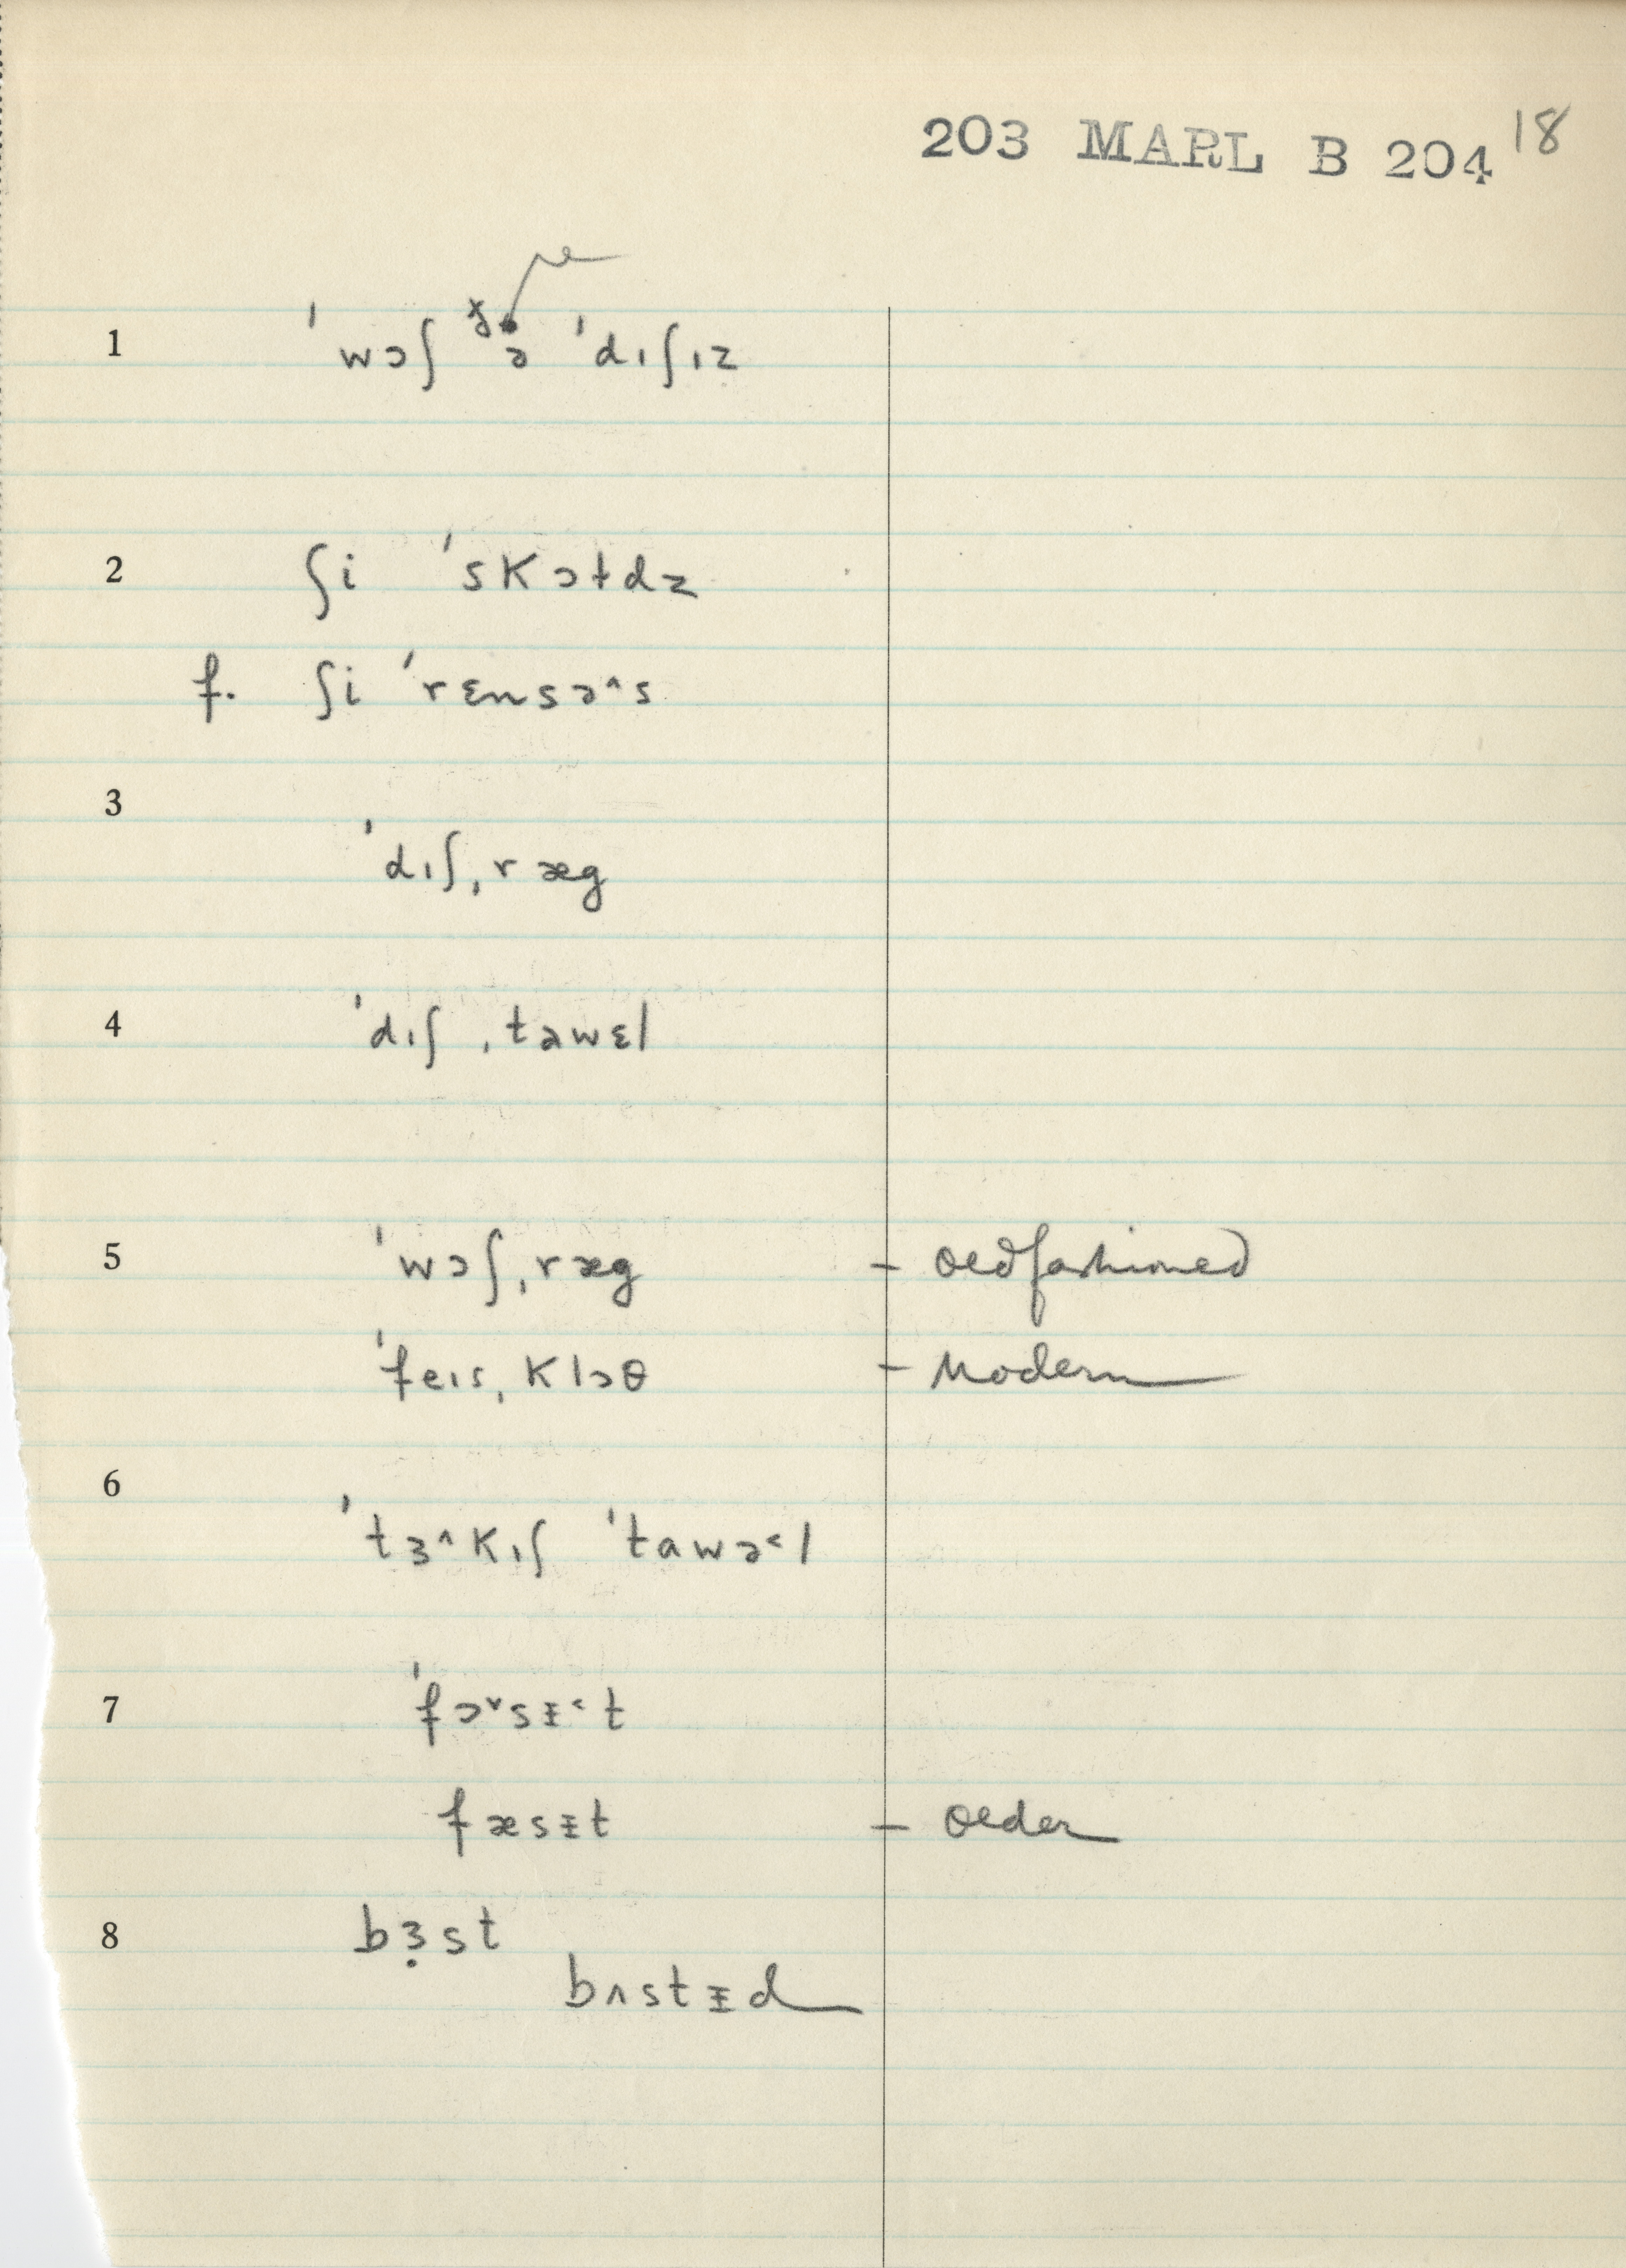 203 MARL B 204 18
1 ˈwɔʃ ðə ˈdɪʃɪz
2 ʃi ˈskɔtdz
f. ʃi ˈrɛnsə^s
3 ˈdɪʃˌræg
4 ˈdɪʃ ˌtawɛl
5 ˈwɔʃˌræg – oldfashioned
ˈfeɪsˌklɔθ – Modern
6 ˈtɜ^kɪʃ ˈtawə˂l
7 ˈfɔ˅sᵻ˂t
fæsᵻt – older
8 bɜ̣st
bʌstᵻd